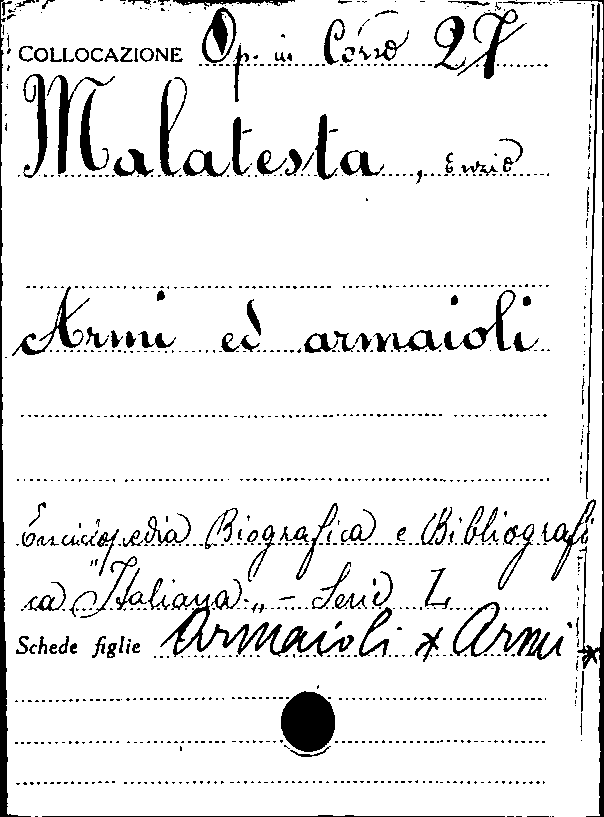 COLLOCAZIONE Op. in Corso 27
Malatesta, Enzio
Armi ed armaioli
Enciclopedia Biografica e Bibliografi
ca "Italiana" - Serie L
Schede figlie Armaioli * Armi *